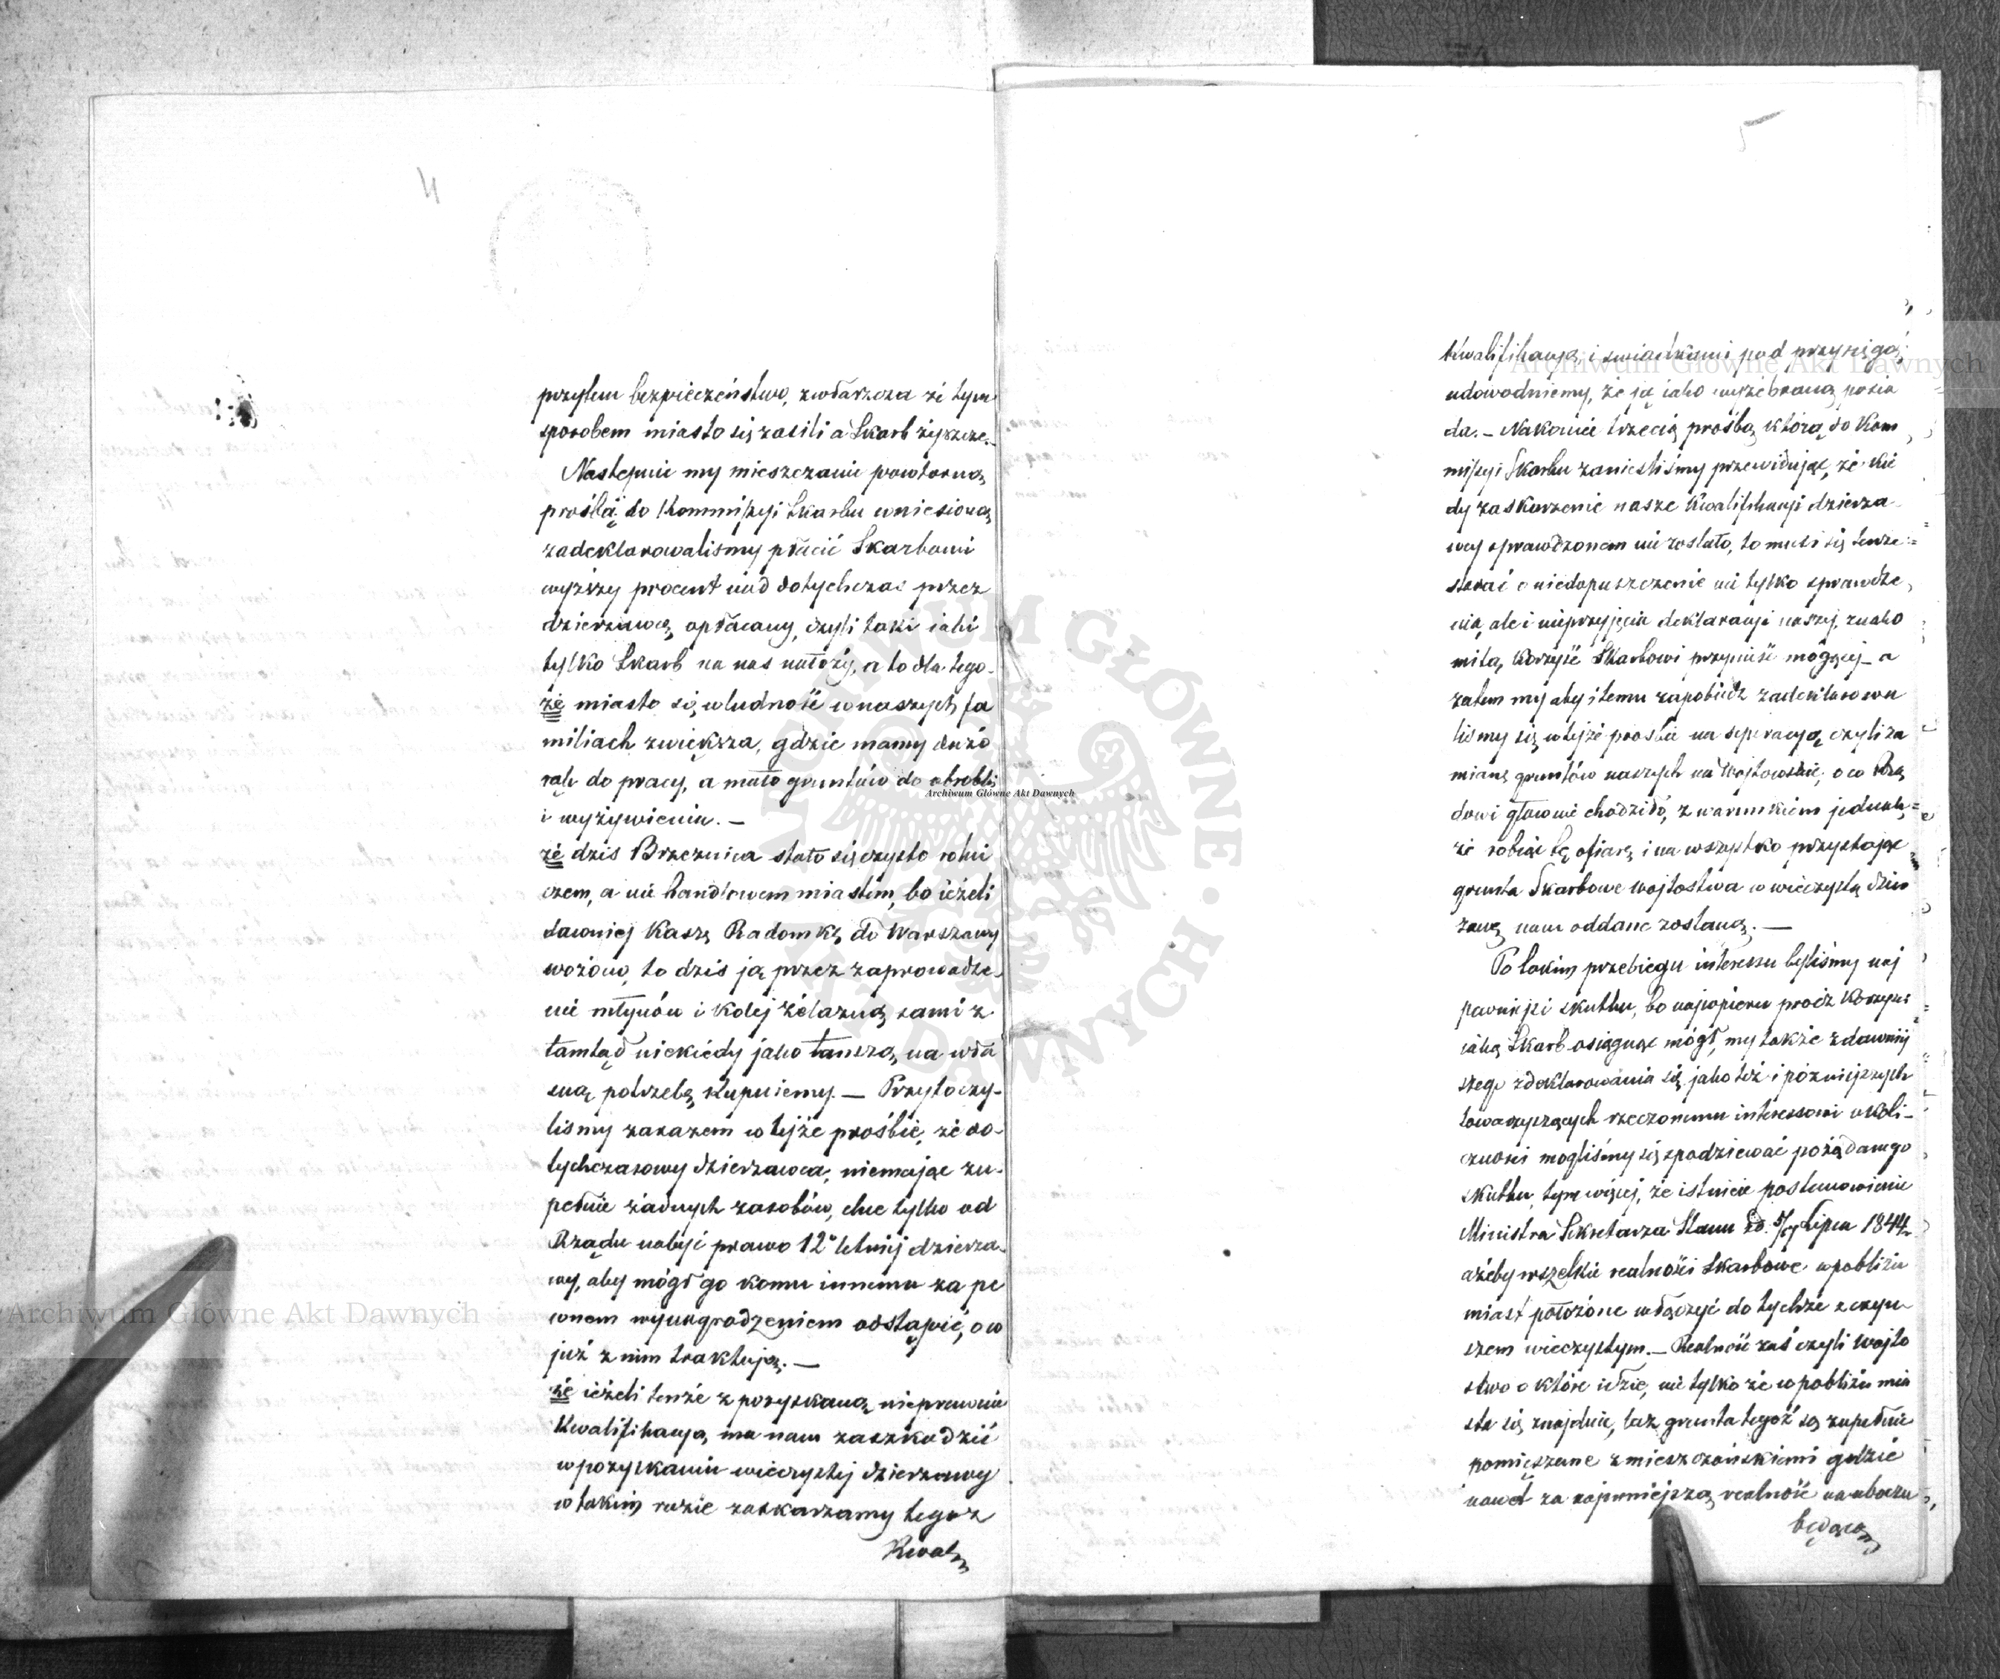 4
przytem bezpieczeństwo, zwłaszcza że tym
sposobem miasto się zasili a Skarb zyszcze.
Następnie my mieszczanie powtorną
prośbą do Kommissyi Skarbu wniesioną
zadeklarowaliśmy płacić Skarbowi
wyższy procent niż dotychczas przez
dzierżawcę opłacany, czyli taki iaki
tylko Skarb na nas nałoży, a to dla tego
że miasto się w ludność w naszych fa
miliach zwiększa, gdzie mamy dużo
rąk do pracy, a mało gruntów do obrobk
i wyżywienia. —
że dziś Brzeznica stało się czysto rolni
czem, a nie handlowem miastem, bo ieżeli
dawniej Kaszę Radomką do Warszawy
wożono, to dziś ją przez zaprowadze-
nie młynów i kolej żelazną sami z
tamtąd niekiedy jako tańszą, na wła
sną potrzebę kupuiemy. — Przytoczy-
liśmy zarazem w tejże prośbie, że do-
tychczasowy dzierżawca, niemając zu-
pełnie żadnych zasobów, chce tylko od
Rządu nabyć prawo 12 letniej dzierża-
wy, aby mógł go komu innemu za pe
wnem wynagrodzeniem odstąpić, o co
już z nim traktują. —
że ieżeli tenże z pozyskaną nieprawnie
Kwalifikacyą, ma nam zaszkodzić
w pozyskaniu wieczystej dzierżawy
w takim razie zaskarzamy tegoż
Kwali
5
Kwalifikacyą i swiadkami pod przysięgą,
udowodniemy, że ją iako wyżebraną posia
da. — Nakoniec trzecią prośbą, którą do Kom
missyi Skarbu zanieśliśmy przewidując, że kie
dy zaskarzenie nasze Kwalifikacyi dzierza-
wcy sprawdzonem nie zostało, to musi się tenże
starać o niedopuszczenie nie tylko sprawdze
nia, ale i nieprzyjęcia deklaracyi naszej, znako
mitą, korzyść Skarbowi przynieść mogącej — a
zatem my aby i temu zapobiedz zadeklarowa
liśmy się w tejże prośbie na separacyą czyli za
mianę gruntów naszych na Wojtowskie, o co Rzą
dowi głownie chodziło, z warunkiem jednak,
że robiąc tę ofiarę i na wszystko przystając
grunta Skarbowe wojtostwa w wieczystą dzier
żawę nam oddane zostaną. —
Po takim przebiegu interessu byliśmy naj
pewniejsi skutku, bo najopieru prócz korzyści
iaką Skarb osiągnąć mógł, my także z dawniej
szego zdeklarowania się, jako też i późniejszych
towarzyszących rzeczonemu interessowi okoli-
czności mogliśmy się spodziewać pożądanego
skutku, tym więcej, że istnieie postanowienie
Ministra Sekretarza Stanu z d. 5/17 Lipca 1844 r.
ażeby wszelkie realności Skarbowe w pobliżu
miast położone włączyć do tychże z czyn-
szem wieczystym. — Realność zaś czyli Wojto
stwo o które idzie, nie tylko że w pobliżu mia
sta się znajduie, lecz grunta tegoż są zupełnie
pomięszane z mieszczańskiemi gdzie
nawet za najmniejszą realność na uboczu
będącą
Archiwum Główne Akt Dawnych
Archiwum Główne Akt Dawnych
Archiwum Główne Akt Dawnych
ARCHIWUM GŁÓWNE AKT DAWNYCH